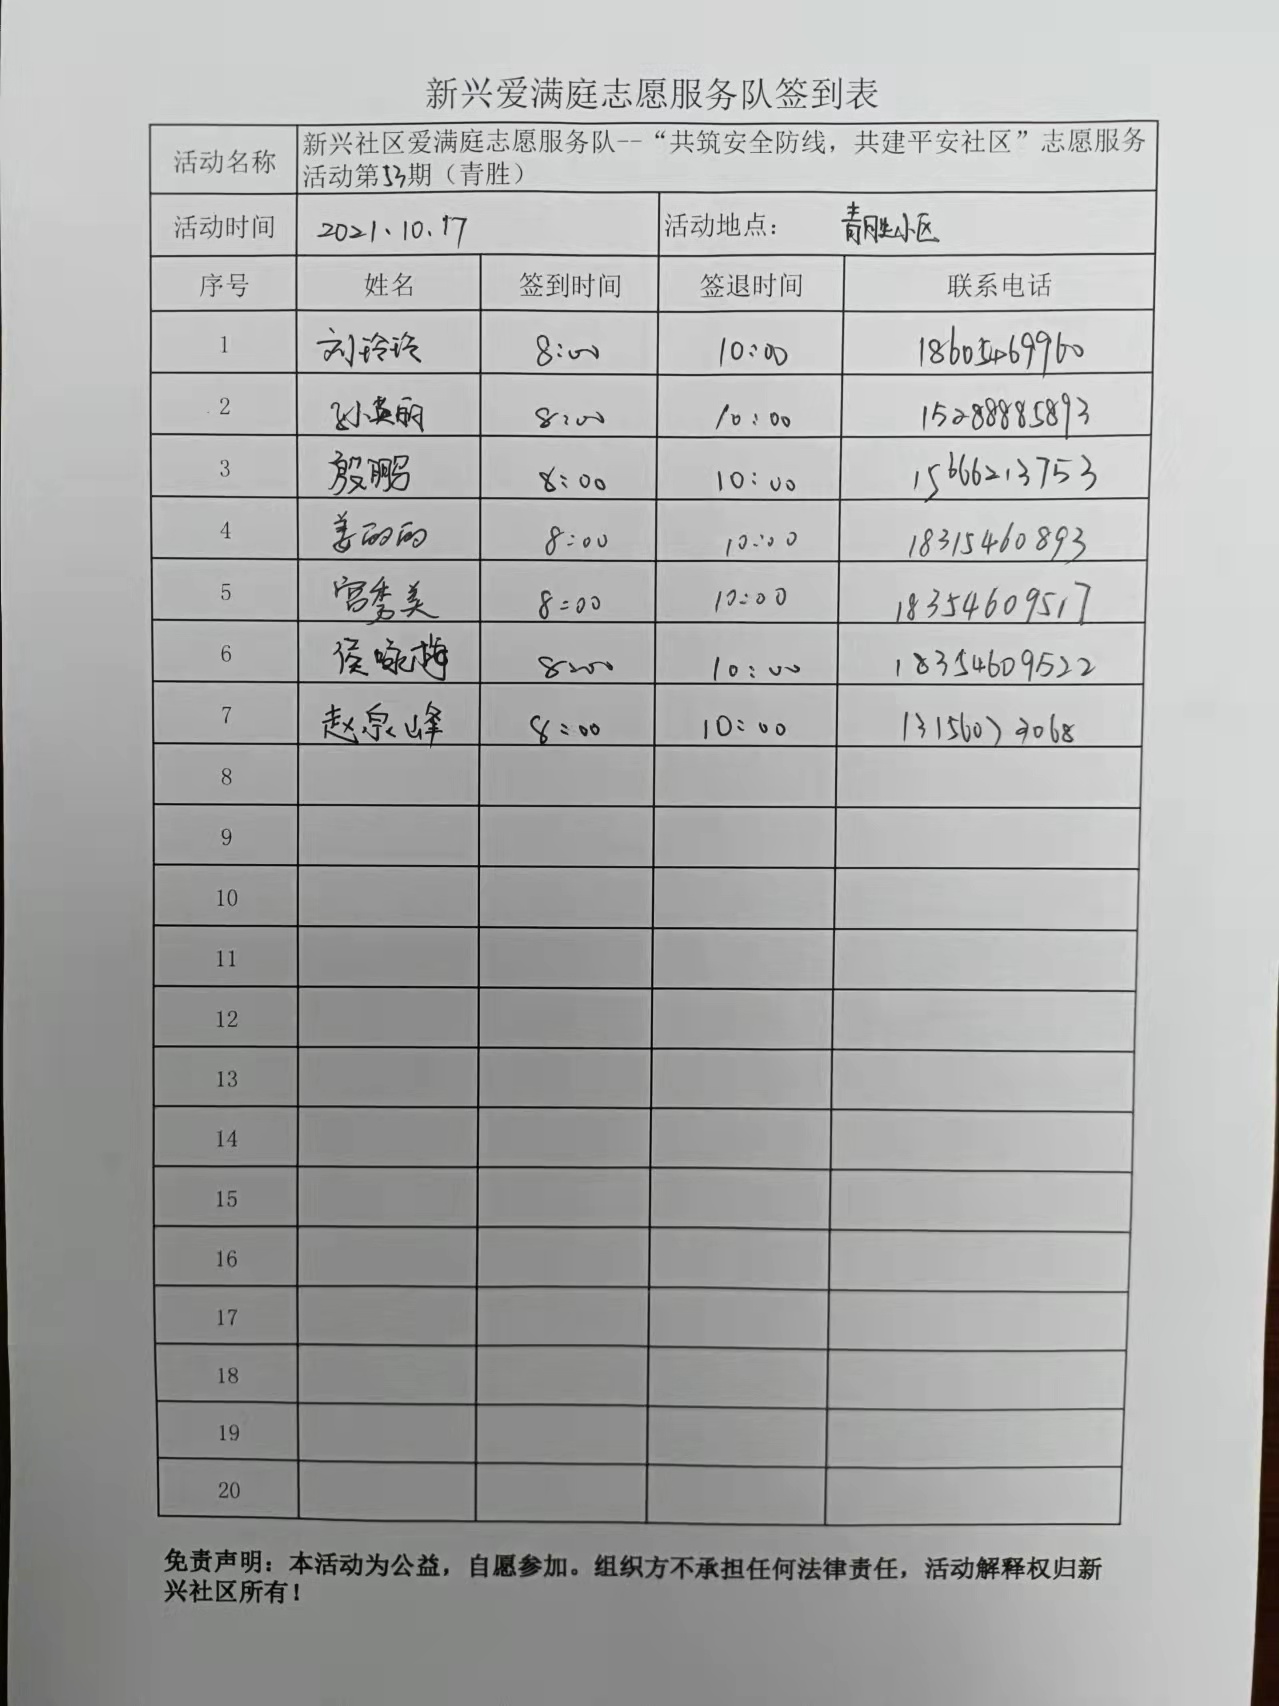 新兴爱满庭志愿服务队签到表
活动名称 新兴社区爱满庭志愿服务队--“共筑安全防线，共建平安社区”志愿服务
活动第53期（青胜）
活动时间 2021.10.17 活动地点： 青胜小区
序号 姓名 签到时间 签退时间 联系电话
1 刘玲玲 8:00 10:00 18605469960
2 孙英丽 8:00 10:00 15288885893
3 殷鹏 8:00 10:00 15666213753
4 姜的的 8:00 10:00 18315460893
5 宫秀美 8:00 10:00 18354609517
6 侯咏梅 8:00 10:00 18354609522
7 赵泉峰 8:00 10:00
8
9
10
11
12
13
14
15
16
17
18
19
20
免责声明：本活动为公益，自愿参加。组织方不承担任何法律责任，活动解释权归新
兴社区所有！